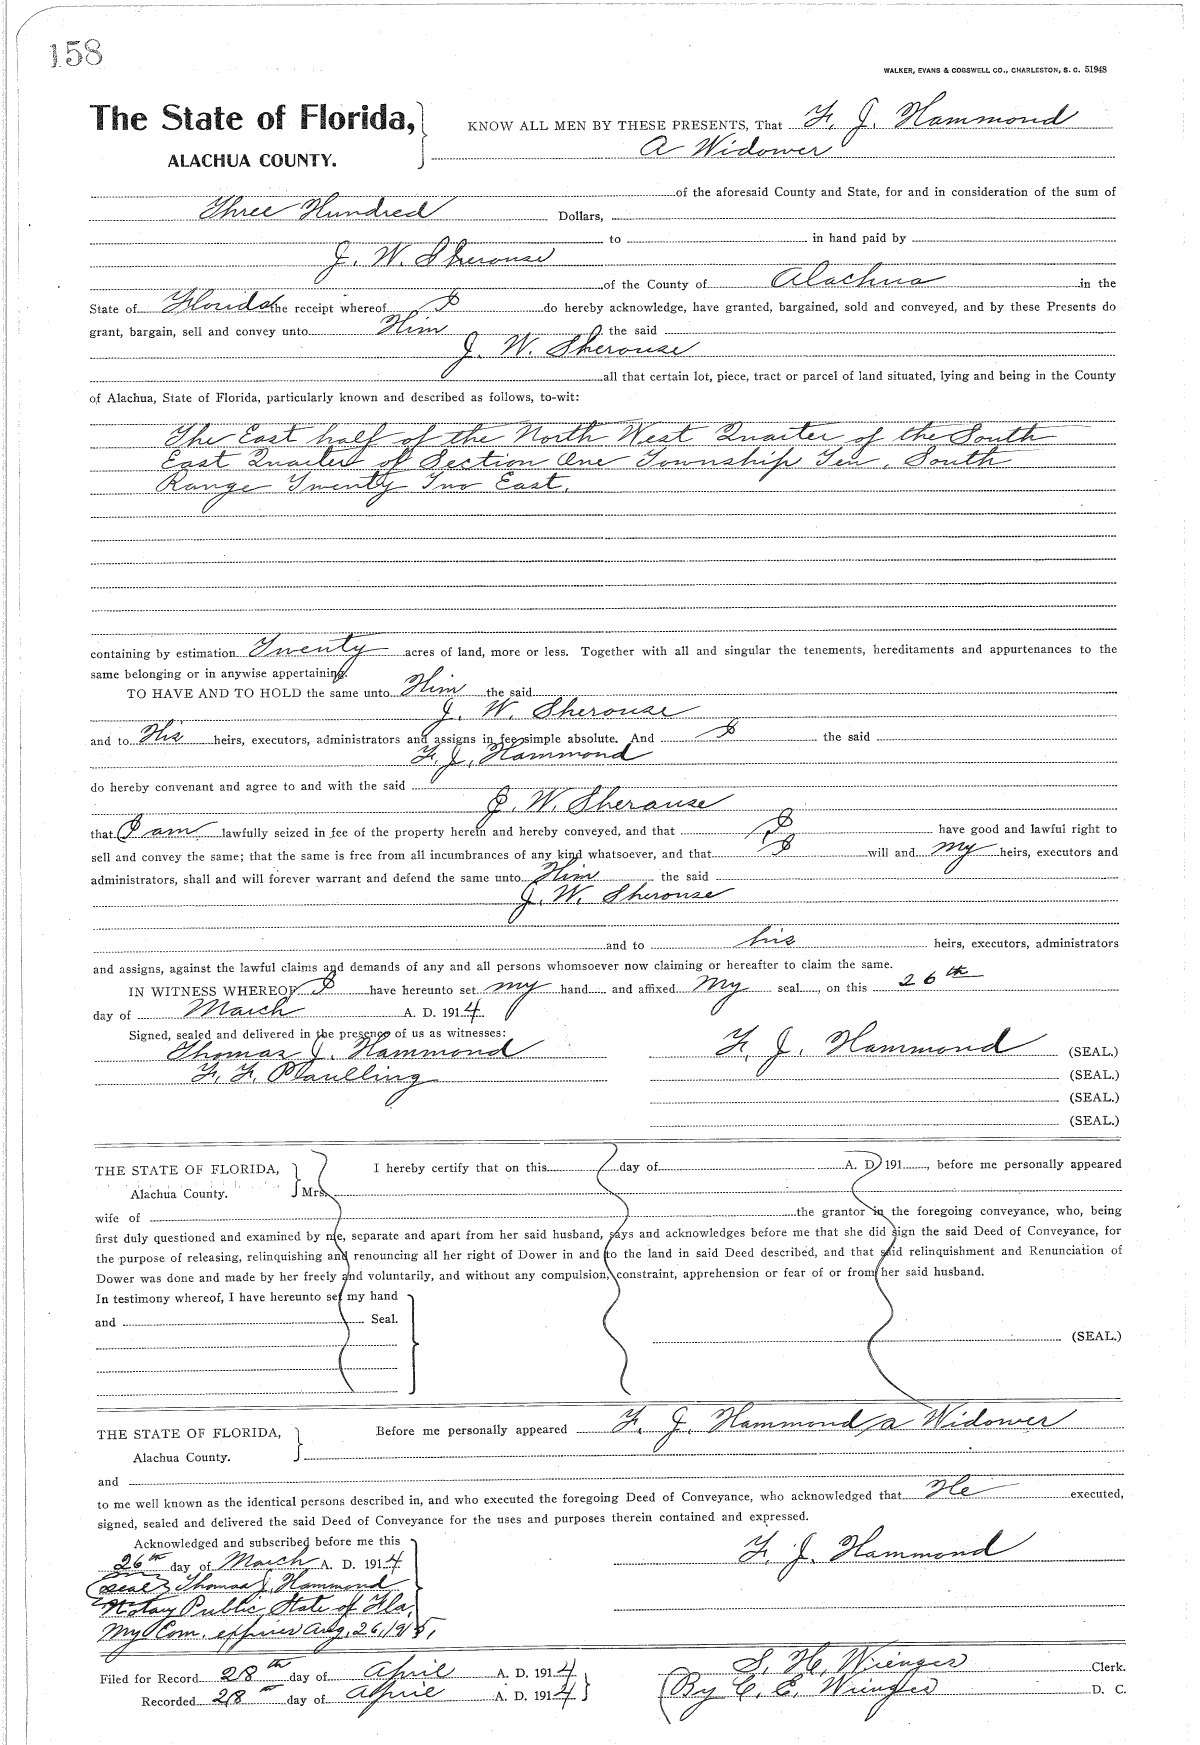 158
WALKER, EVANS & COGSWELL CO., CHARLESTON, S. C. 51948
The State of Florida, KNOW ALL MEN BY THESE PRESENTS, That F. J. Hammond
ALACHUA COUNTY. A Widower
of the aforesaid County and State, for and in consideration of the sum of
Three Hundred Dollars,
to in hand paid by
J. W. Sherouse
of the County of Alachua in the
State of Florida the receipt whereof I do hereby acknowledge, have granted, bargained, sold and conveyed, and by these Presents do
grant, bargain, sell and convey unto Him the said
J. W. Sherouse
all that certain lot, piece, tract or parcel of land situated, lying and being in the County
of Alachua, State of Florida, particularly known and described as follows, to-wit:
The East half of the North West Quarter of the South
East Quarter of Section One Township Ten, South
Range Twenty Two East.
containing by estimation Twenty acres of land, more or less. Together with all and singular the tenements, hereditaments and appurtenances to the
same belonging or in anywise appertaining.
TO HAVE AND TO HOLD the same unto Him the said
J. W. Sherouse
and to His heirs, executors, administrators and assigns in fee simple absolute. And I the said
F. J. Hammond
do hereby convenant and agree to and with the said
J. W. Sherouse
that I am lawfully seized in fee of the property herein and hereby conveyed, and that I have good and lawful right to
sell and convey the same; that the same is free from all incumbrances of any kind whatsoever, and that I will and my heirs, executors and
administrators, shall and will forever warrant and defend the same unto Him the said
J. W. Sherouse
and to his heirs, executors, administrators
and assigns, against the lawful claims and demands of any and all persons whomsoever now claiming or hereafter to claim the same.
IN WITNESS WHEREOF I have hereunto set my hand and affixed My seal, on this 26th
day of March A. D. 1914.
Signed, sealed and delivered in the presence of us as witnesses:
Thomas J. Hammond F. J. Hammond (SEAL.)
F. F. Paulling (SEAL.)
(SEAL.)
(SEAL.)
THE STATE OF FLORIDA, I hereby certify that on this day of A. D. 191 , before me personally appeared
Alachua County. Mrs.
wife of the grantor in the foregoing conveyance, who, being
first duly questioned and examined by me, separate and apart from her said husband, says and acknowledges before me that she did sign the said Deed of Conveyance, for
the purpose of releasing, relinquishing and renouncing all her right of Dower in and to the land in said Deed described, and that said relinquishment and Renunciation of
Dower was done and made by her freely and voluntarily, and without any compulsion, constraint, apprehension or fear of or from her said husband.
In testimony whereof, I have hereunto set my hand
and Seal.
(SEAL.)
THE STATE OF FLORIDA, Before me personally appeared F. J. Hammond a Widower
Alachua County.
and
to me well known as the identical persons described in, and who executed the foregoing Deed of Conveyance, who acknowledged that He executed,
signed, sealed and delivered the said Deed of Conveyance for the uses and purposes therein contained and expressed.
Acknowledged and subscribed before me this
26th day of March A. D. 1914 F. J. Hammond
(Seal) Thomas J. Hammond
Notary Public State of Fla.
My Com. expires Aug. 26, 1915,
Filed for Record 28th day of April A. D. 1914 S. H. Wienges Clerk.
Recorded 28th day of April A. D. 1914 By C. E. Wienges D. C.